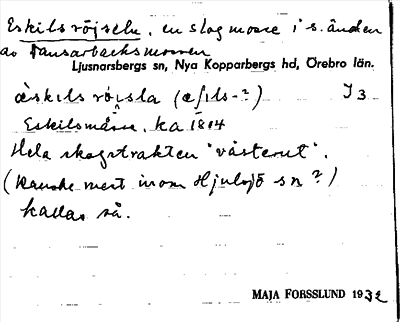 Eskilsröjseln, en slogmosse i s. änden
av Dansarbacksmossen
Ljusnarsbergs sn, Nya Kopparbergs hd, Örebro län.
æskils röjsla (æſils-?) J 3
Eskilsmåsse, ka 1814
Hela skogstrakten "västerut".
(kanske mest inom Hjulsjö sn?)
kallas så.
MAJA FORSSLUND 1932